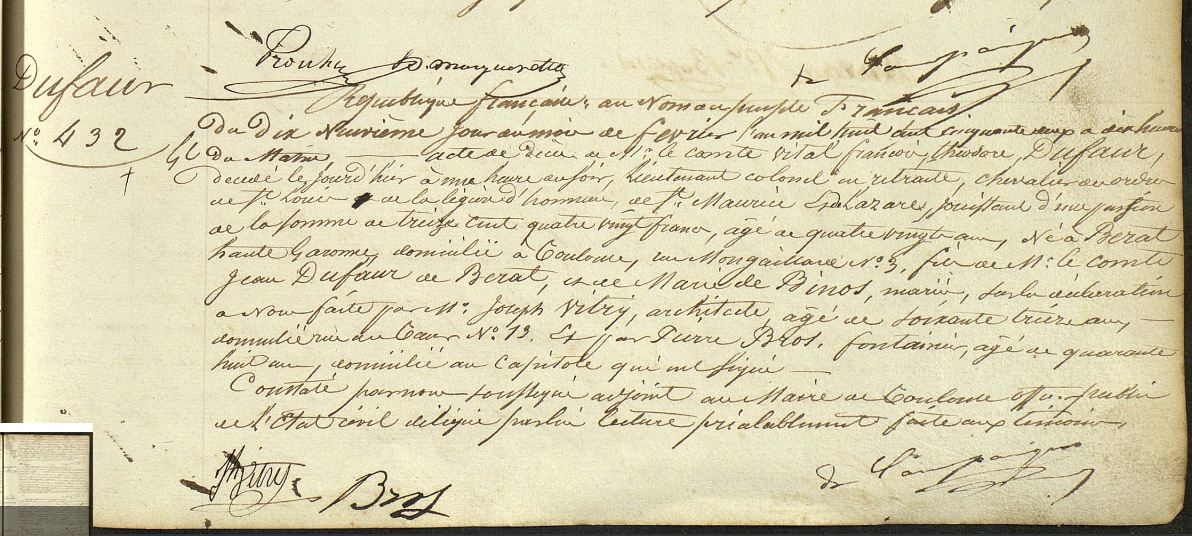 Dufaur
N° 432
de Campaigno
République française, au Nom du peuple Français
Du Dix Neuvième jour du mois de fevrier l'an mil huit cent cinquante deux à dix heures
du Matin — acte de décès de Mr. le comte Vital françois, théodore, Dufaur,
decedé le jour d'hier à une heure du soir, Lieutenant colonel en retraite, chevalier des ordres
de St. Louis de la légion d'honneur, de St. Maurice Lazare, jouissant d'une pension
de la somme de treize cent quatre vingt francs, âgé de quatre vingts ans, Né à Berat
haute Garonne, domicilié à Toulouse, rue Mongaillard N° 3, fils de Mr. le comte
Jean Dufaur de Berat, et de Marie de Binos, marié, sur la déclaration
à Nous faite par Mr. Joseph Vitry, architecte, âgé de soixante treize ans, —
domicilié rue du Taur N° 13. Et par Pierre Bros, fontainier, âgé de quarante
huit ans, domicilié au capitole qui ont signé —
Constaté par nous soussigné adjoint au Maire de Toulouse offr. public
de l'Etat civil délégué par lui lecture préalablement faite aux témoins,
Vitry
Bros
de Campaigno